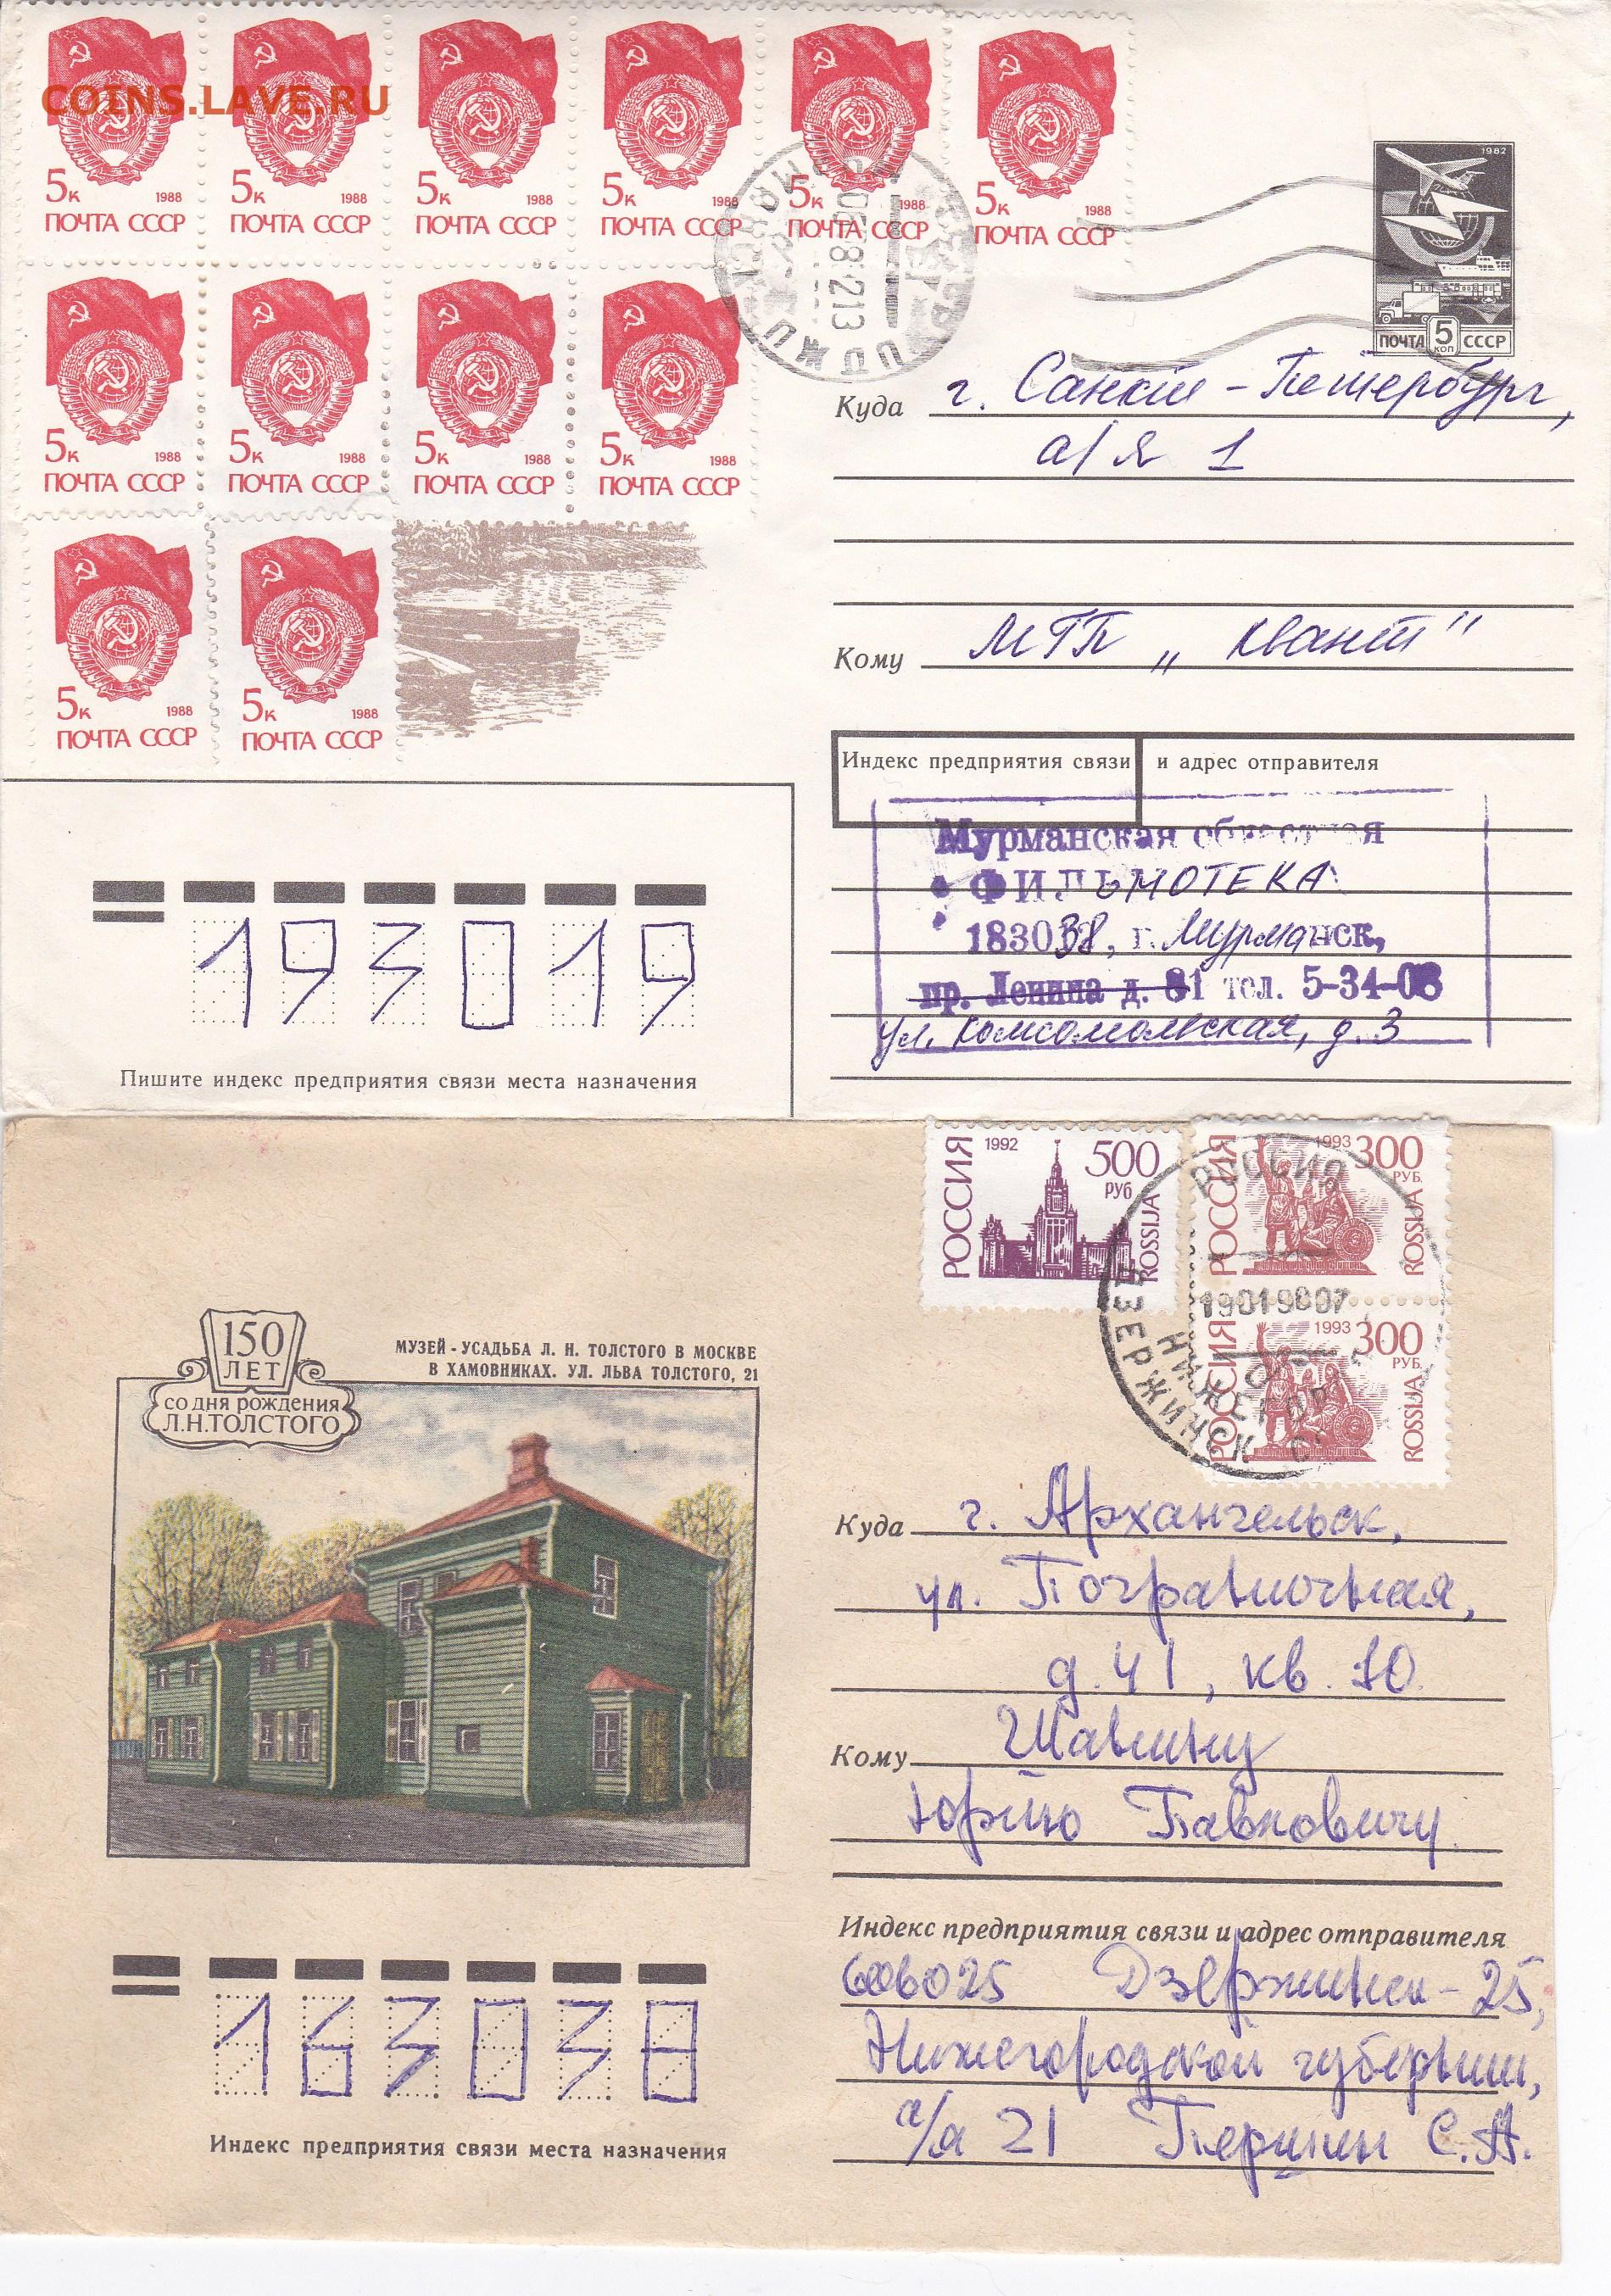 COINS.LAVE.RU
5к 1988 ПОЧТА СССР
5к 1988 ПОЧТА СССР
5к 1988 ПОЧТА СССР
5к 1988 ПОЧТА СССР
5к 1988 ПОЧТА СССР
5к 1988 ПОЧТА СССР
1982
ПОЧТА 5 КОП СССР
5к 1988 ПОЧТА СССР
5к 1988 ПОЧТА СССР
5к 1988 ПОЧТА СССР
5к 1988 ПОЧТА СССР
5к 1988 ПОЧТА СССР
5к 1988 ПОЧТА СССР
Куда г. Санкт-Петербург,
а/я 1
Кому МГП „Квант"
Индекс предприятия связи и адрес отправителя
Мурманская областная
ФИЛЬМОТЕКА
183038, г. Мурманск,
пр. Ленина д. 81 тел. 5-34-08
ул. Комсомольская, д. 3
193019
Пишите индекс предприятия связи места назначения
РОССИЯ 1992 500 РУБ ROSSIJA
РОССИЯ 1993 300 РУБ. ROSSIJA
РОССИЯ 1993 300 РУБ. ROSSIJA
РОССИЯ
ДЗЕРЖИНСК
150 ЛЕТ
СО ДНЯ РОЖДЕНИЯ
Л.Н.ТОЛСТОГО
МУЗЕЙ-УСАДЬБА Л. Н. ТОЛСТОГО В МОСКВЕ
В ХАМОВНИКАХ. УЛ. ЛЬВА ТОЛСТОГО, 21
Куда г. Архангельск,
ул. Пограничная,
д. 41, кв. 10.
Кому Шавлину
Юрию Павловичу.
Индекс предприятия связи и адрес отправителя
606025 Дзержинск-25,
Нижегородской губернии,
а/я 21 С.А.
163038
Индекс предприятия связи места назначения